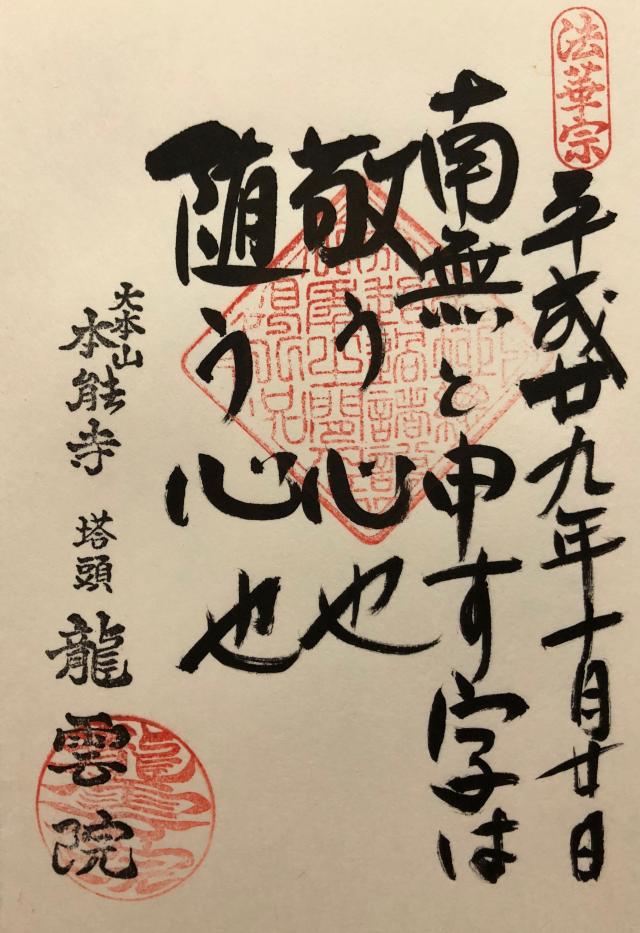 法華宗
平成廿九年十月廿日
南無と申す字は
敬う心也
随う心也
大本山
本能寺 塔頭 龍雲院
龍雲院